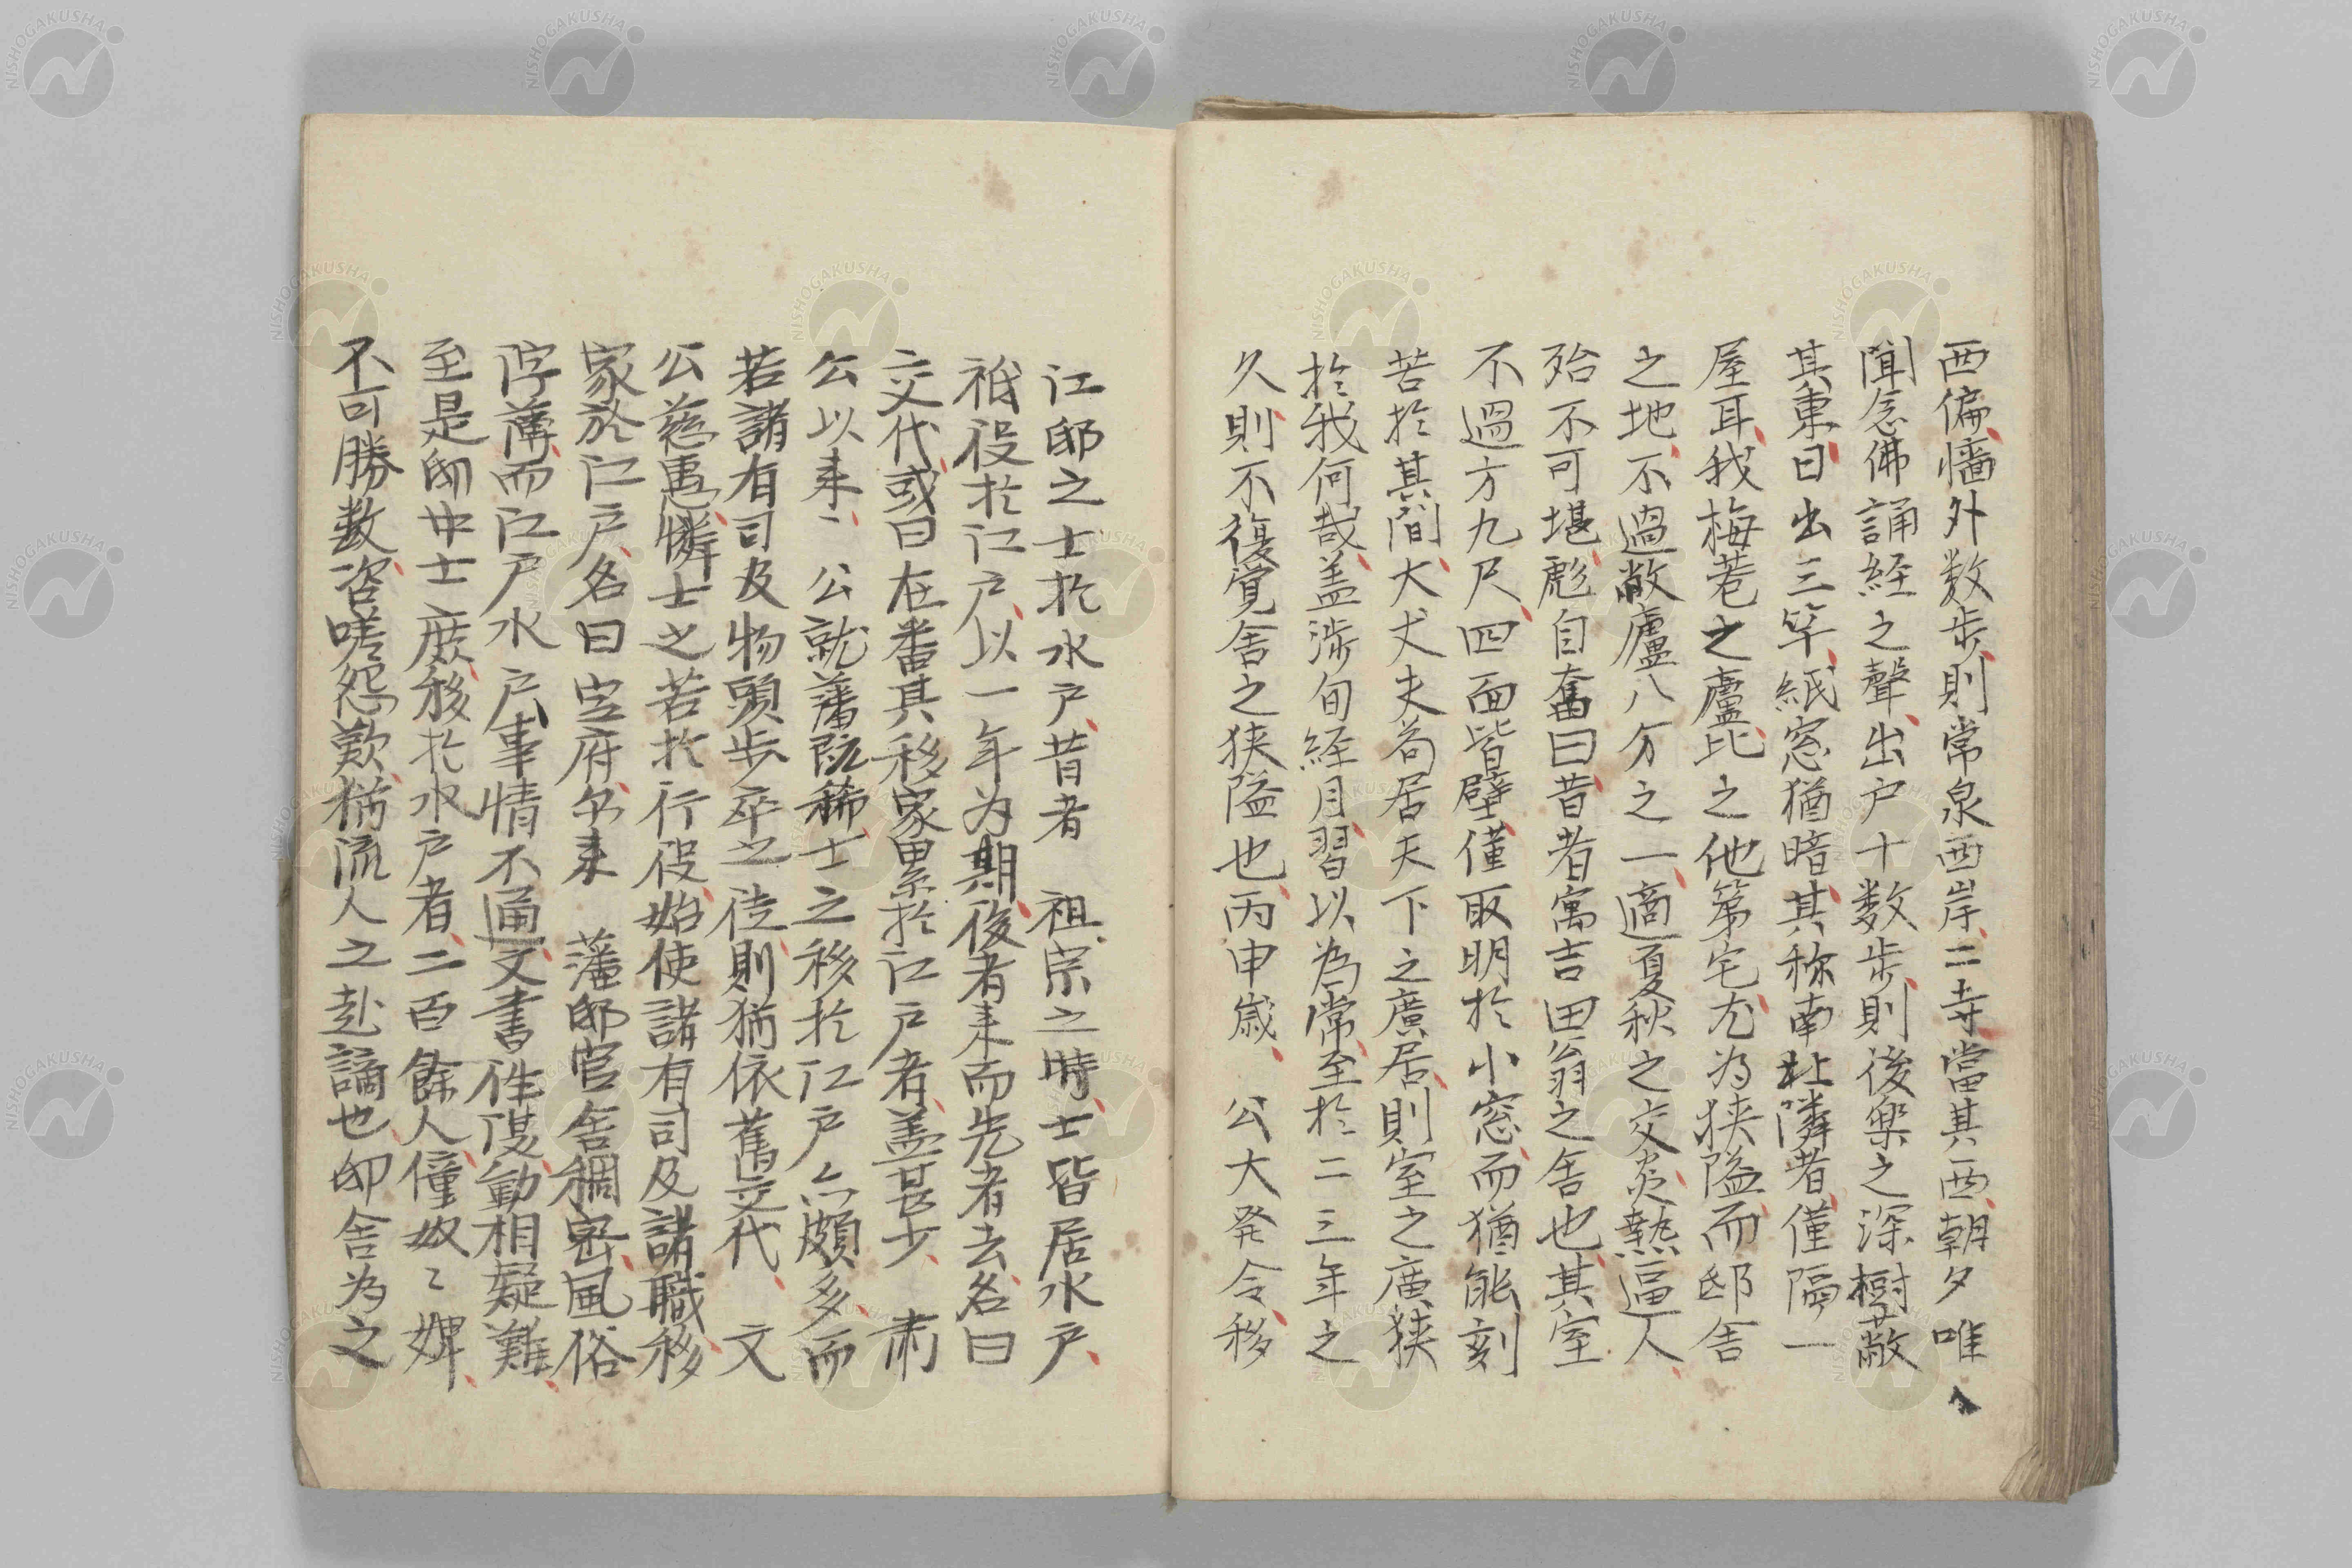 西偏墻外数歩則常泉西岸二寺當其西朝夕唯
聞念佛誦経之聲出户十数歩則後樂之深樹蔽
其東日出三竿紙窓猶暗其称南北隣者僅隔一
屋耳我梅巷之廬比之他第宅尤為狭隘而邸舎
之地不過敝廬八分之一適夏秋之交炎熱逼人
殆不可堪彪自奮曰昔者寓吉田翁之舎也其室
不過方九尺四面皆壁僅取明於小窓而猶能刻
苦於其間大丈夫苟居天下之廣居則室之廣狭
於我何哉盖渉旬経月習以為常至於二三年之
久則不復覚舎之狭隘也丙申歳　公大発令移
江邸之士於水户昔者　祖宗之時士皆居水户
祗役於江户以一年为期後者来而先者去名曰
交代或曰在番其移家累於江户者盖甚少　肃
公以来　公就藩既稀士之移於江户亦頗多而
若諸有司及物頭歩卒之徒則猶依舊交代　文
公慈惠憐士之苦於行役始使諸有司及諸職移
家於江户名曰定府尓来　藩邸官舎稠密風俗
浮薄而江户水户事情不通文書件復動相疑難
至是邸中士庶移於水户者二百餘人僮奴〻婢
不可勝数咨嗟怨歎猶流人之赴謫也邸舎为之
NISHOGAKUSHA